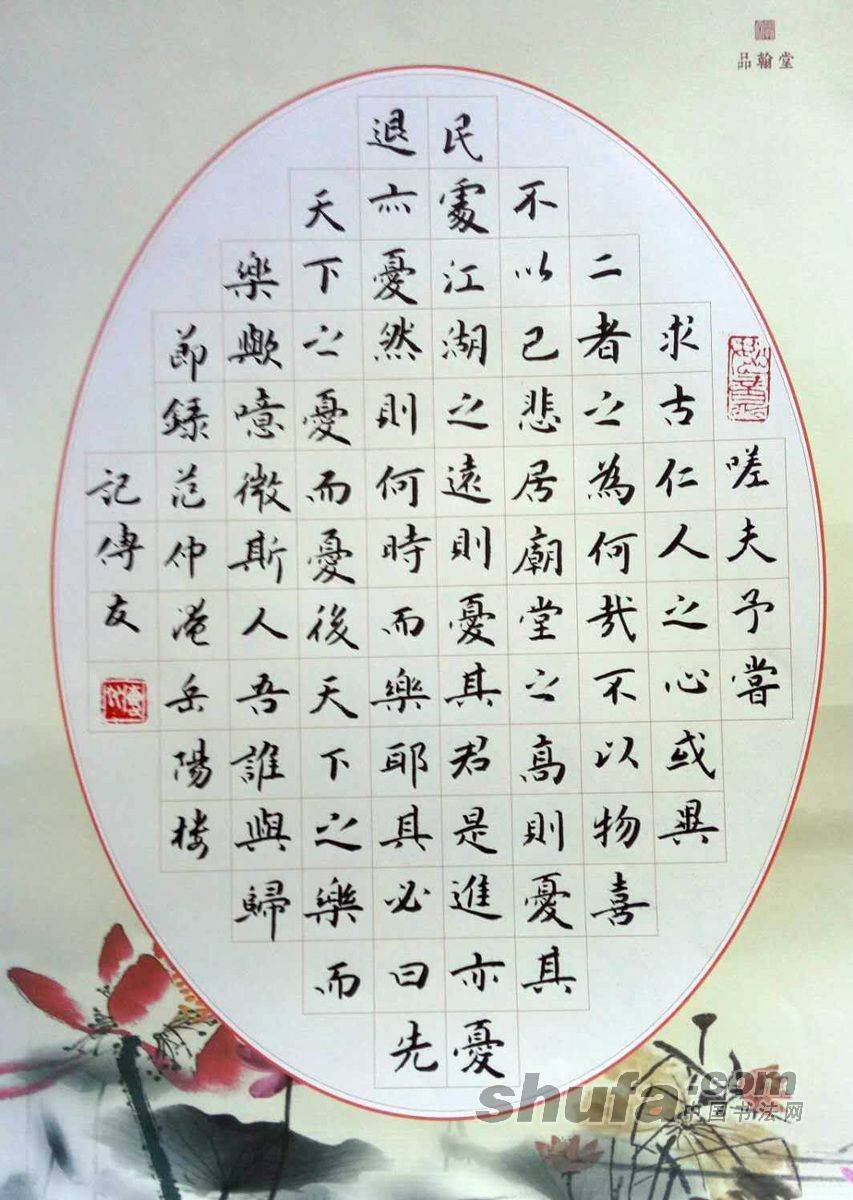 品翰堂
嗟夫予嘗
求古仁人之心或異
二者之為何哉不以物喜
不以己悲居廟堂之高則憂其
民處江湖之遠則憂其君是進亦憂
退亦憂然則何時而樂耶其必曰先
天下之憂而憂後天下之樂而
樂歟噫微斯人吾誰與歸
節錄范仲淹岳陽楼
記傅友
shufa.com
中国书法网